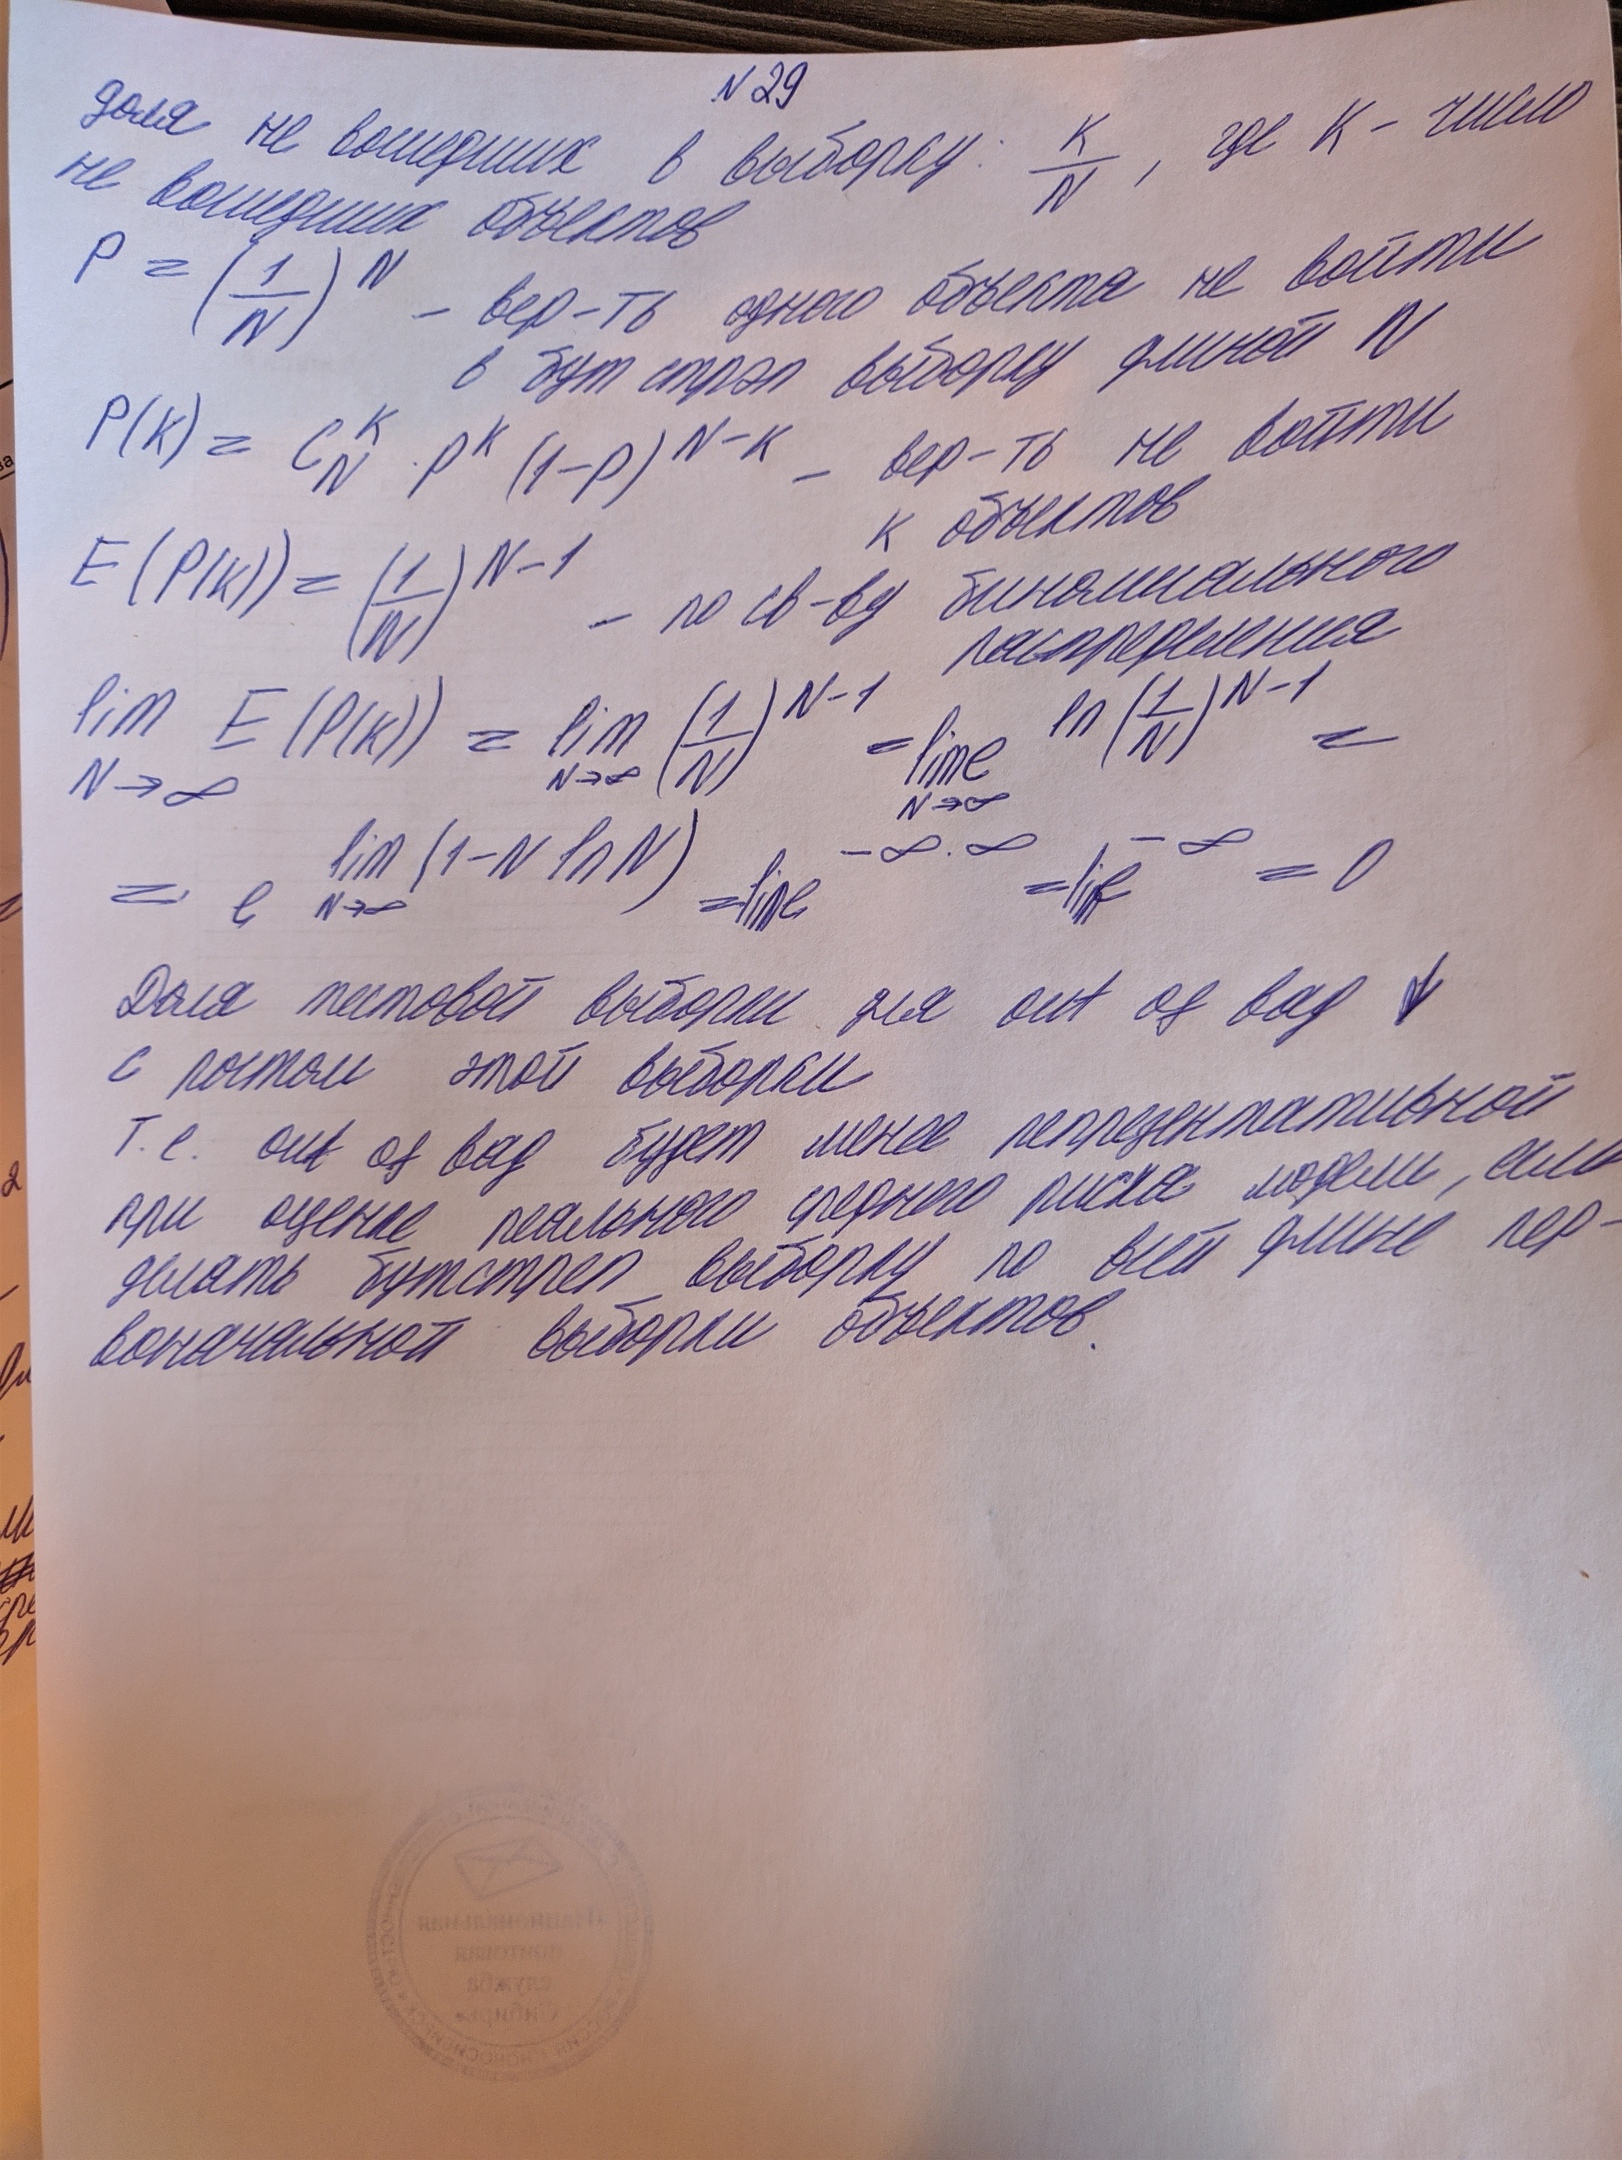 N 29
доля не вошедших в выборку: K/N, где K - число
не вошедших объектов
P = (1/N)^N - вер-ть одного объекта не войти
в бутстрэп выборку длиной N
P(K) = C_N^K · P^K (1-P)^{N-K} - вер-ть не войти
K объектов
E(P(K)) = (1/N)^{N-1} - по св-ву биномиального
распределения
lim_{N→∞} E(P(K)) = lim_{N→∞} (1/N)^{N-1} = lim_{N→∞} e^{ln(1/N)^{N-1}} =
= e^{lim_{N→∞} (1-N ln N)} = lim e^{-∞·∞} = lim e^{-∞} = 0
Доля тестовой выборки для out of bag ↓
с ростом этой выборки
Т.е. out of bag будет менее репрезентативной
при оценке реального среднего риска модели, если
делать бутстреп выборку по всей длине пер-
воначальной выборки объектов.
Национальная
почтовая
служба
Сибирь